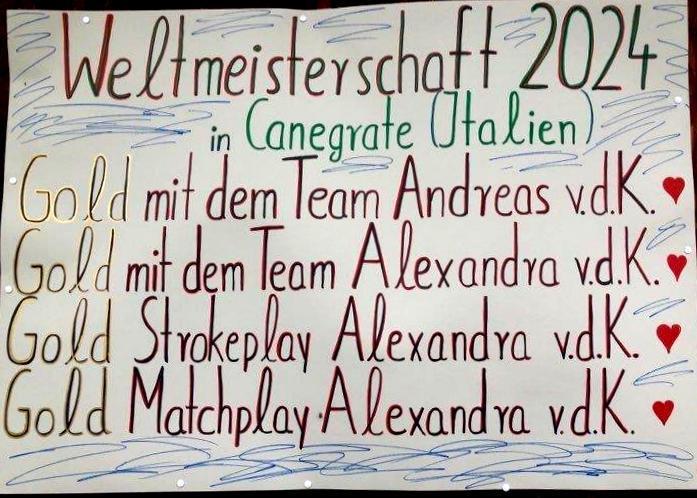 Weltmeisterschaft 2024
in Canegrate (Italien)
Gold mit dem Team Andreas v.d.K.
Gold mit dem Team Alexandra v.d.K.
Gold Strokeplay Alexandra v.d.K.
Gold Matchplay Alexandra v.d.K.